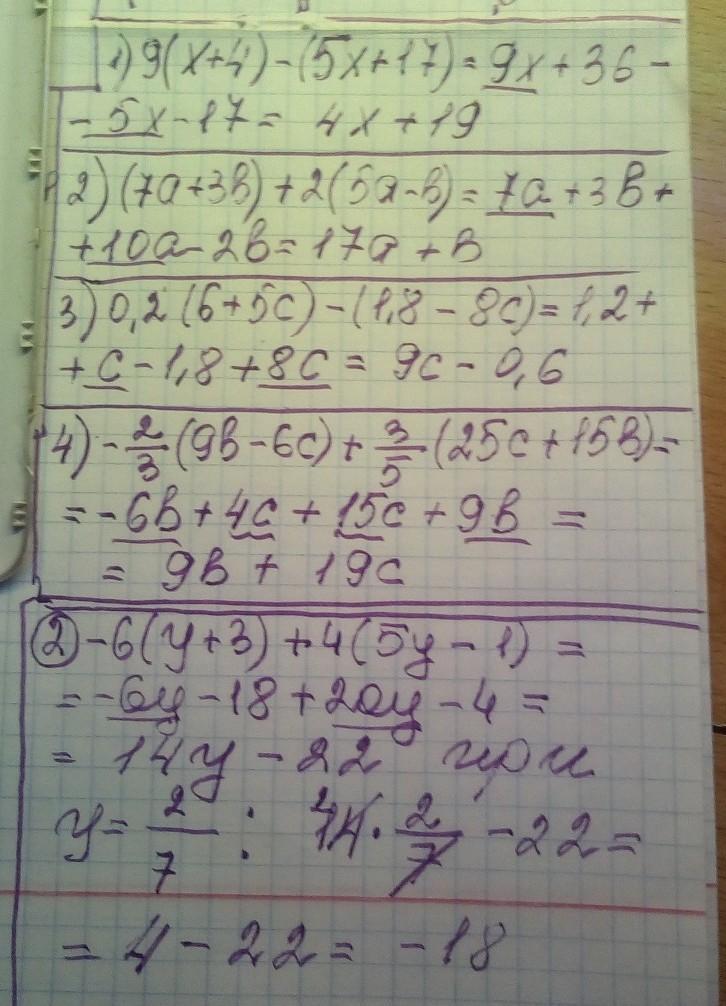 1) 9(x+4)-(5x+17)=9x+36-
-5x-17= 4x+19
2) (7a+3в)+2(5a-в)=7a+3в+
+10a-2в=17a+в
3) 0,2(6+5c)-(1,8-8c)=1,2+
+c-1,8+8c= 9c-0,6
4) -2/3(9в-6c)+3/5(25c+15в)=
=-6в+4c+15c+9в=
= 9в+19c
② -6(y+3)+4(5y-1)=
=-6y-18+20y-4=
= 14y-22 при
y=2/7: 14·2/7-22=
= 4-22= -18